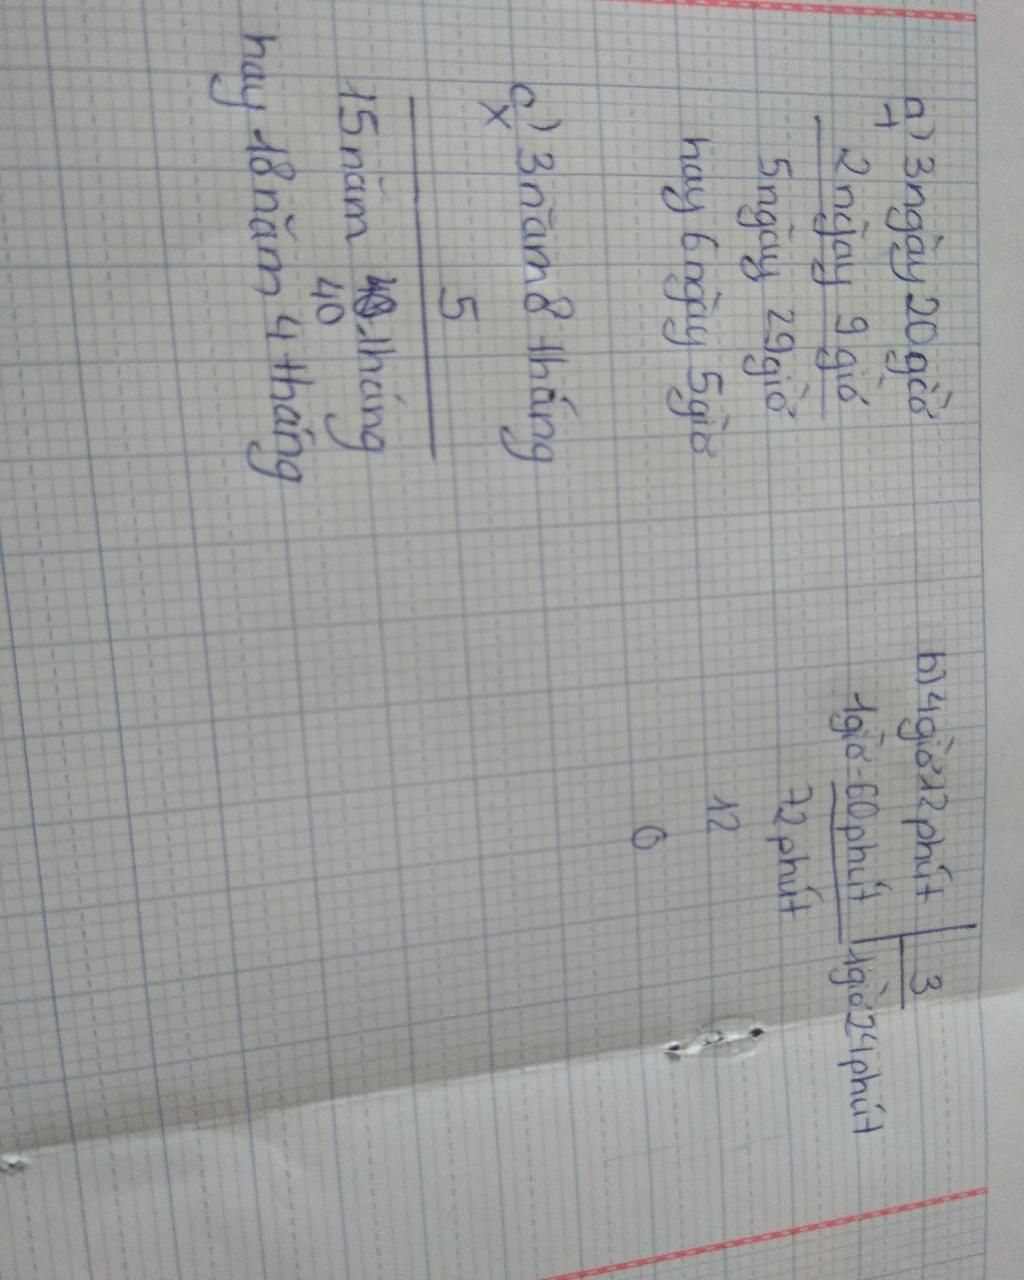 a) 3 ngày 20 giờ
+
2 ngày 9 giờ
5 ngày 29 giờ
hay 6 ngày 5 giờ
b) 4 giờ 12 phút | 3
1 giờ = 60 phút | 1 giờ 24 phút
72 phút
12
0
c) 3 năm 8 tháng
x
5
15 năm 40 tháng
40
hay 18 năm 4 tháng